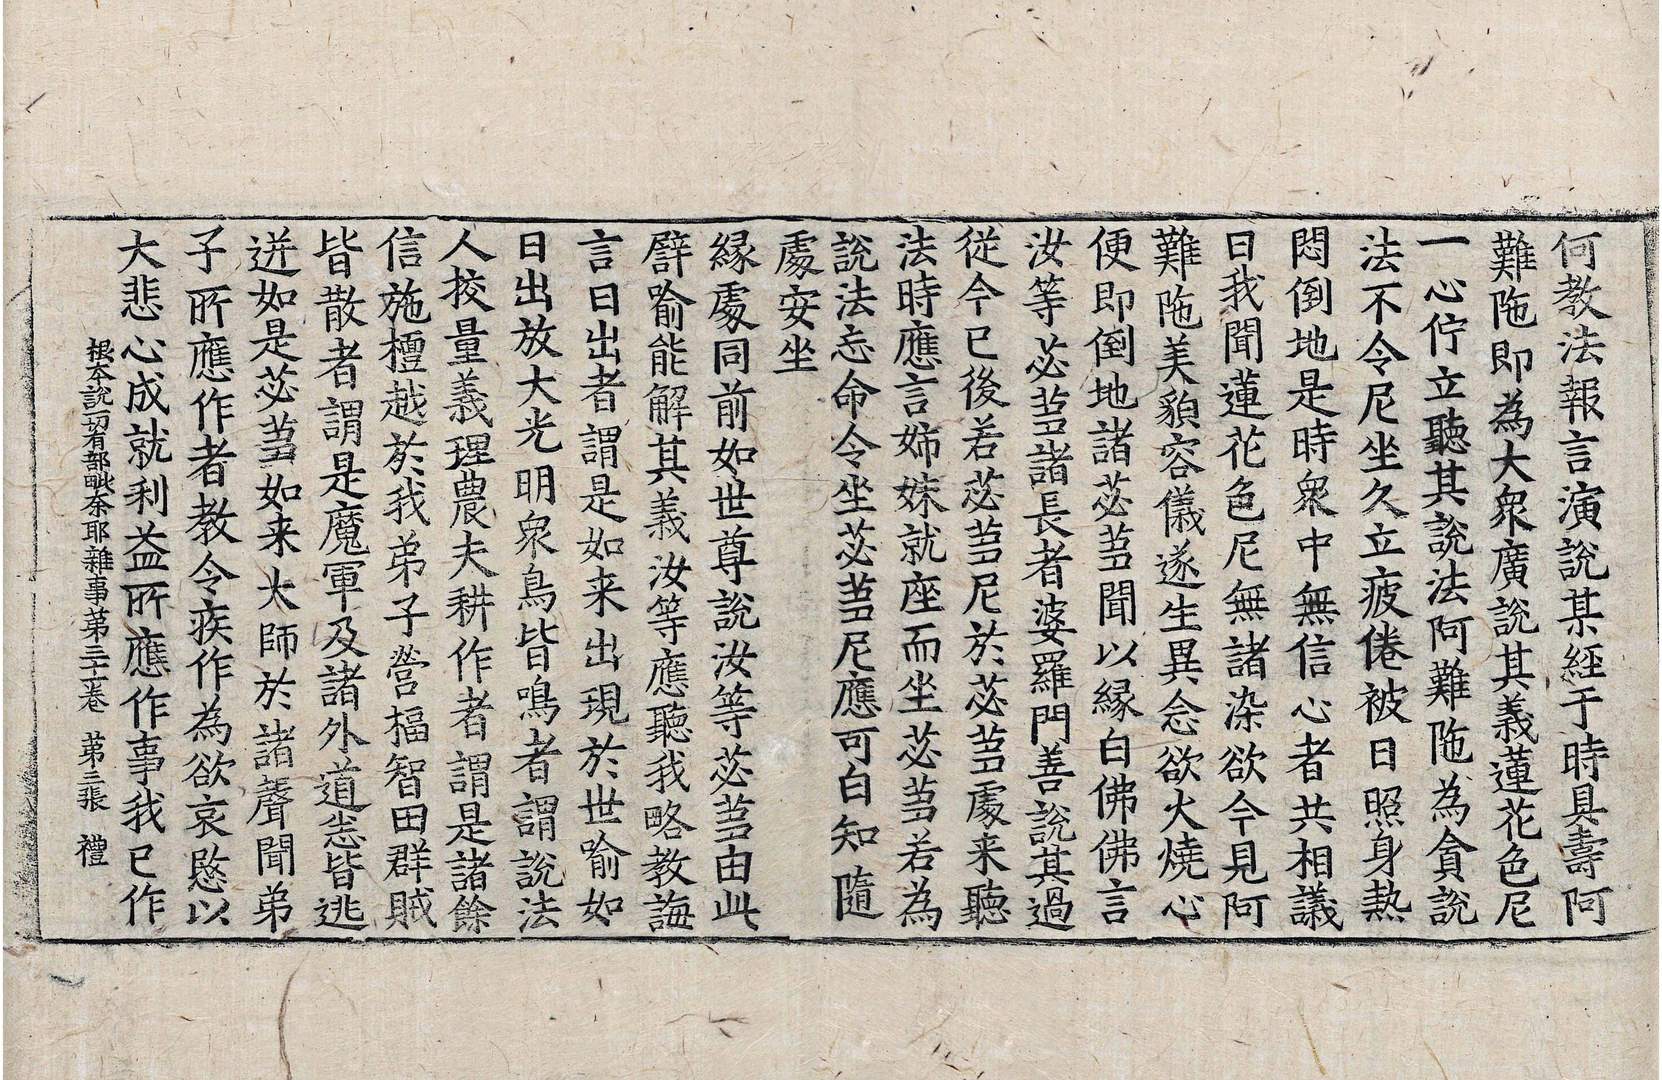 何教法報言演說某經于時具壽阿
難陁即為大衆廣說其義蓮花色尼
一心佇立聽其說法阿難陁為貪說
法不令尼坐久立疲倦被日照身熱
悶倒地是時衆中無信心者共相議
曰我聞蓮花色尼無諸染欲今見阿
難陁美貌容儀遂生異念欲火燒心
便即倒地諸苾芻聞以緣白佛佛言
汝等苾芻諸長者婆羅門善說其過
從今已後若苾芻尼於苾芻處来聽
法時應言姊妹就座而坐苾芻若為
說法忘命令坐苾芻尼應可白知隨
處安坐
緣處同前如世尊說汝等苾芻由此
譬喻能解其義汝等應聽我略教誨
言日出者謂是如来出現於世喻如
日出放大光明衆鳥皆鳴者謂說法
人挍量義理農夫耕作者謂是諸餘
信施檀越於我弟子營福智田群賊
皆散者謂是魔軍及諸外道恙皆逃
迸如是苾芻如来大師於諸聲聞弟
子所應作者教令疾作為欲哀愍以
大悲心成就利益所應作事我已作
根本說一切有部毗奈耶雜事第三十二卷 第三張 禮